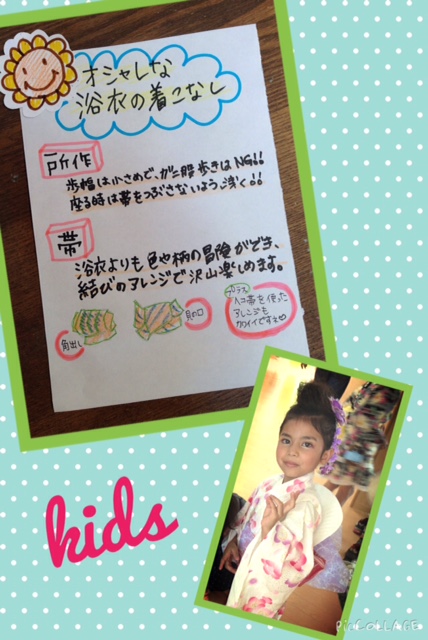 オシャレな
浴衣の着こなし
所作
歩幅は小さめで、ガニ股歩きはNG!!
座る時は帯をつぶさないよう、浅く!!
帯
浴衣よりも色や柄の冒険ができ、
結びのアレンジで沢山楽しめます。
角出し
貝の口
プラス
ヘコ帯を使った
アレンジも
カワイイですョ♡
kids
PicCOLLAGE